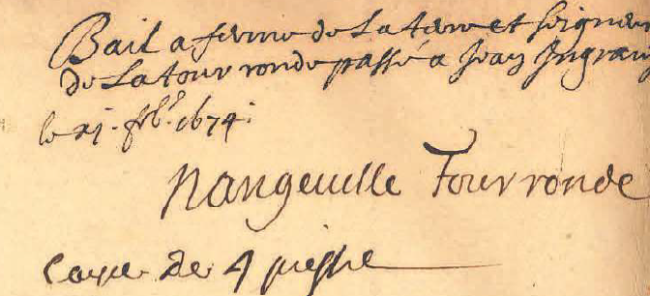 Bail a ferme de La terre et seigneu
de La tour ronde passé a Jean Ingran
le 21. fbr. 1674.
Nangeuille Tour ronde
Coxe de 4 piesse